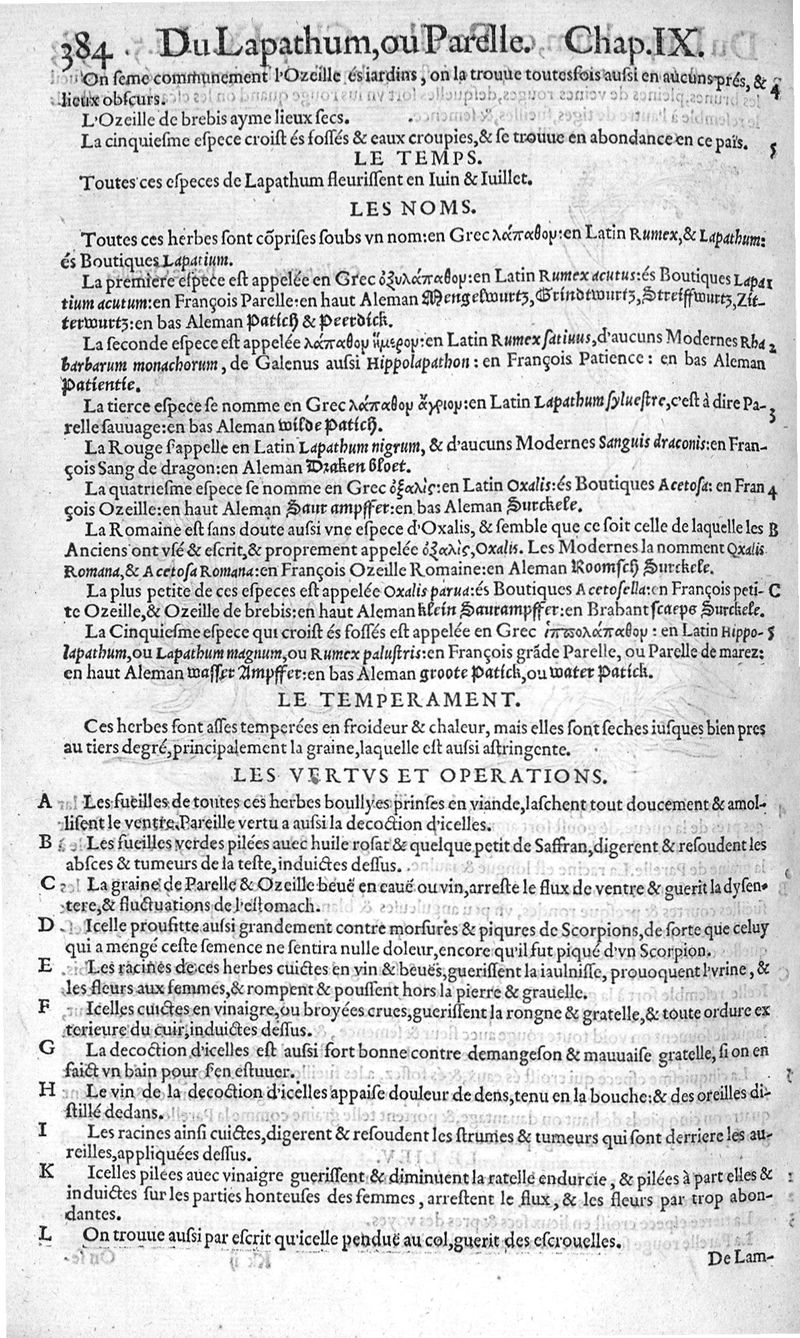 384 . Du Lapathum, ou Parelle. Chap. IX.
On ſeme communement l'Ozeille és iardins, on la trouue toutesfois auſsi en aucuns prés, & 4
lieux obſcurs.
L'Ozeille de brebis ayme lieux ſecs.
La cinquieſme eſpece croiſt és foſſés & eaux croupies, & ſe trouue en abondance en ce païs. 5
LE TEMPS.
Toutes ces eſpeces de Lapathum fleuriſſent en Iuin & Iuillet.
LES NOMS.
Toutes ces herbes ſont cõpriſes ſoubs vn nom: en Grec λάπαθομ: en Latin Rumex, & Lapathum:
és Boutiques Lapatium.
La premiere eſpece eſt appelée en Grec ὀξυλάπαθομ: en Latin Rumex acutus: és Boutiques Lapa- 1
tium acutum: en François Parelle: en haut Aleman Mengelwurtz, Grindtwurtz, Streiffwurtz, Zit-
terwurtz: en bas Aleman Patich & Peerdick.
La seconde eſpece eſt appelée λάπαθομ ἥμερομ: en Latin Rumex ſatiuus, d'aucuns Modernes Rha 2
barbarum monachorum, de Galenus auſsi Hippolapathon: en François Patience: en bas Aleman
Patientie.
La tierce eſpece ſe nomme en Grec λάπαθομ ἄγριομ: en Latin Lapathum ſylueſtre, c'eſt à dire Pa- 3
relle ſauuage: en bas Aleman wilde Patich.
La Rouge ſ'appelle en Latin Lapathum nigrum, & d'aucuns Modernes Sanguis draconis: en Fran-
çois Sang de dragon: en Aleman Draken bloet.
La quatrieſme eſpece ſe nomme en Grec ὀξαλὶς: en Latin Oxalis: és Boutiques Acetoſa: en Fran 4
çois Ozeille: en haut Aleman Saur ampffer: en bas Aleman Surckele.
La Romaine eſt ſans doute auſsi vne eſpece d'Oxalis, & ſemble que ce ſoit celle de laquelle les B
Anciens ont vſé & eſcrit, & proprement appelée ὀξαλὶς, Oxalis. Les Modernes la nomment Oxalis
Romana, & Acetoſa Romana: en François Ozeille Romaine: en Aleman Roomſch Surckele.
La plus petite de ces eſpeces eſt appelée Oxalis parua: és Boutiques Acetoſella: en François peti- C
te Ozeille, & Ozeille de brebis: en haut Aleman klein Saurampffer: en Brabant ſcaeps Surckele.
La Cinquieſme eſpece qui croiſt és foſſés eſt appelée en Grec ἱππολάπαθομ: en Latin Hippo- 5
lapathum, ou Lapathum magnum, ou Rumex paluſtris: en François grãde Parelle, ou Parelle de marez:
en haut Aleman waſſer Ampffer: en bas Aleman groote Patick, ou water Patick.
LE TEMPERAMENT.
Ces herbes ſont aſſes temperées en froideur & chaleur, mais elles ſont ſeches iuſques bien pres
au tiers degré, principalement la graine, laquelle eſt auſsi aſtringente.
LES VERTVS ET OPERATIONS.
A Les fueilles de toutes ces herbes boullyes prinſes en viande, laſchent tout doucement & amol-
liſent le ventre. Pareille vertu a auſsi la decoction d'icelles.
B Les fueilles verdes pilées auec huile roſat & quelque petit de Saffran, digerent & reſoudent les
abſces & tumeurs de la teſte, induictes deſſus.
C La graine de Parelle & Ozeille beuë en eauë ou vin, arreſte le flux de ventre & guerit la dyſen-
tere, & fluctuations de l'eſtomach.
D Icelle proufitte auſsi grandement contre morſures & piqures de Scorpions, de ſorte que celuy
qui a mengé ceſte ſemence ne ſentira nulle doleur, encore qu'il fut piqué d'vn Scorpion.
E Les racines de ces herbes cuictes en vin & beuës, gueriſſent la iaulniſſe, prouoquent l'vrine, &
les fleurs aux femmes, & rompent & pouſſent hors la pierre & grauelle.
F Icelles cuictes en vinaigre, ou broyées crues, gueriſſent la rongne & gratelle, & toute ordure ex
terieure du cuir, induictes deſſus.
G La decoction d'icelles eſt auſsi fort bonne contre demangeſon & mauuaiſe gratelle, ſi on en
faict vn bain pour ſ'en eſtuuer.
H Le vin de la decoction d'icelles appaiſe douleur de dens, tenu en la bouche: & des oreilles di-
ſtillé dedans.
I Les racines ainſi cuictes, digerent & reſoudent les ſtrumes & tumeurs qui ſont derriere les au-
reilles, appliquées deſſus.
K Icelles pilées auec vinaigre gueriſſent & diminuent la ratelle endurcie, & pilées à part elles &
induictes ſur les parties honteuſes des femmes, arreſtent le flux, & les fleurs par trop abon-
dantes.
L On trouue auſsi par eſcrit qu'icelle penduë au col, guerit des eſcrouelles.
De Lam-